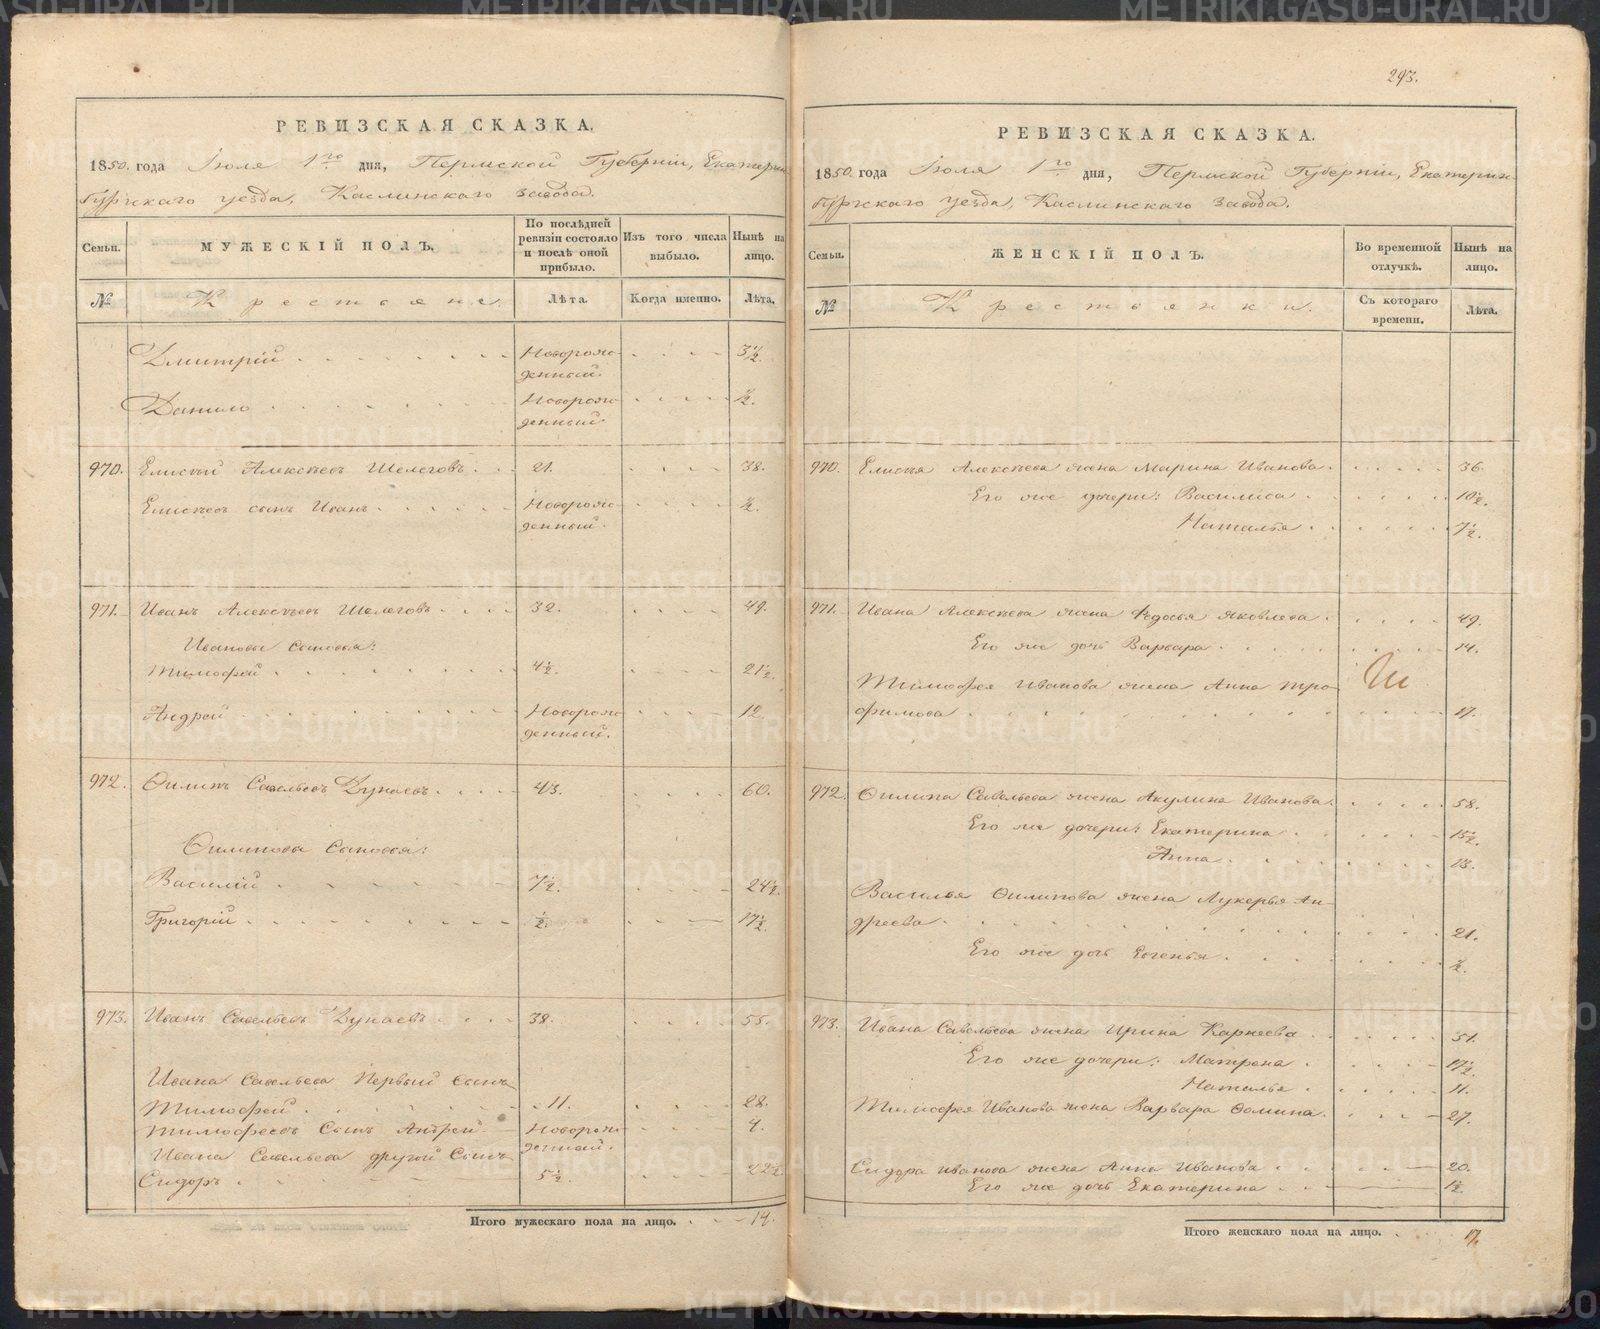 293.
РЕВИЗСКАЯ СКАЗКА.
1850. года Іюля 1го дня, Пермской Губерніи, Екатерин-
бургскаго уезда, Каслинскаго завода.
Семьи.
МУЖЕСКІЙ ПОЛЪ.
По послѣдней ревизіи состояло и послѣ оной прибыло.
Изъ того числа выбыло.
Нынѣ на лицо.
№
Крестьяне.
Лѣта.
Когда именно.
Лѣта.
Дмитрій Новорож- 3 1/2.
денный.
Данило Новорож- 1/2.
денный.
970. Елисѣй Алексѣевъ Шелеговъ 21. 38.
Елисѣевъ сынъ Иванъ Новорож- 1/2.
денный.
971. Иванъ Алексѣевъ Шелеговъ 32. 49.
Ивановы сыновья:
Тимофей 4 1/2. 21 1/2.
Андрей Новорож- 12.
денный.
972. Ѳилипъ Савельевъ Дунаевъ 43. 60.
Ѳилиповы Сыновья:
Василій 7 1/2. 24 1/2.
Григорій 1/2. 17 1/2.
973. Иванъ Савельевъ Дунаевъ 38. 55.
Ивана Савельева Первый Сынъ
Тимофей 11. 28.
Тимофеевъ Сынъ Андрей Новорож- 4.
денный.
Ивана Савельева другой Сынъ
Сидоръ 5 1/2. 22 1/2.
Итого мужескаго пола на лицо. 14.
РЕВИЗСКАЯ СКАЗКА.
1850. года Іюля 1го дня, Пермской Губерніи, Екатерин-
бургскаго уезда, Каслинскаго завода.
Семьи.
ЖЕНСКІЙ ПОЛЪ.
Во временной отлучкѣ.
Нынѣ на лицо.
№
Крестьянки.
Съ котораго времени.
Лѣта.
970. Елисѣя Алексѣева жена Марина Иванова 36.
Его же дочери: Василиса 10 1/2.
Наталья 7 1/2.
971. Ивана Алексѣева жена Федосья Яковлева 49.
Его же дочь Варвара 14.
Тимофея Иванова жена Анна Тро-
фимова 17.
972. Ѳилипа Савельева жена Акулина Иванова 58.
Его же дочери: Екатерина 15 1/2.
Анна 13.
Василья Ѳилипова жена Лукерья Ан-
дреева 21.
Его же дочь Евгенья 1/2.
973. Ивана Савельева жена Ирина Карнеева 51.
Его же дочери: Матрена 17 1/2.
Наталья 11.
Тимофея Иванова жена Варвара Ѳомина 27.
Сидора Иванова жена Анна Иванова 20.
Его же дочь Екатерина 1 1/2.
Итого женскаго пола на лицо. 17.
METRIKI.GASO-URAL.RU